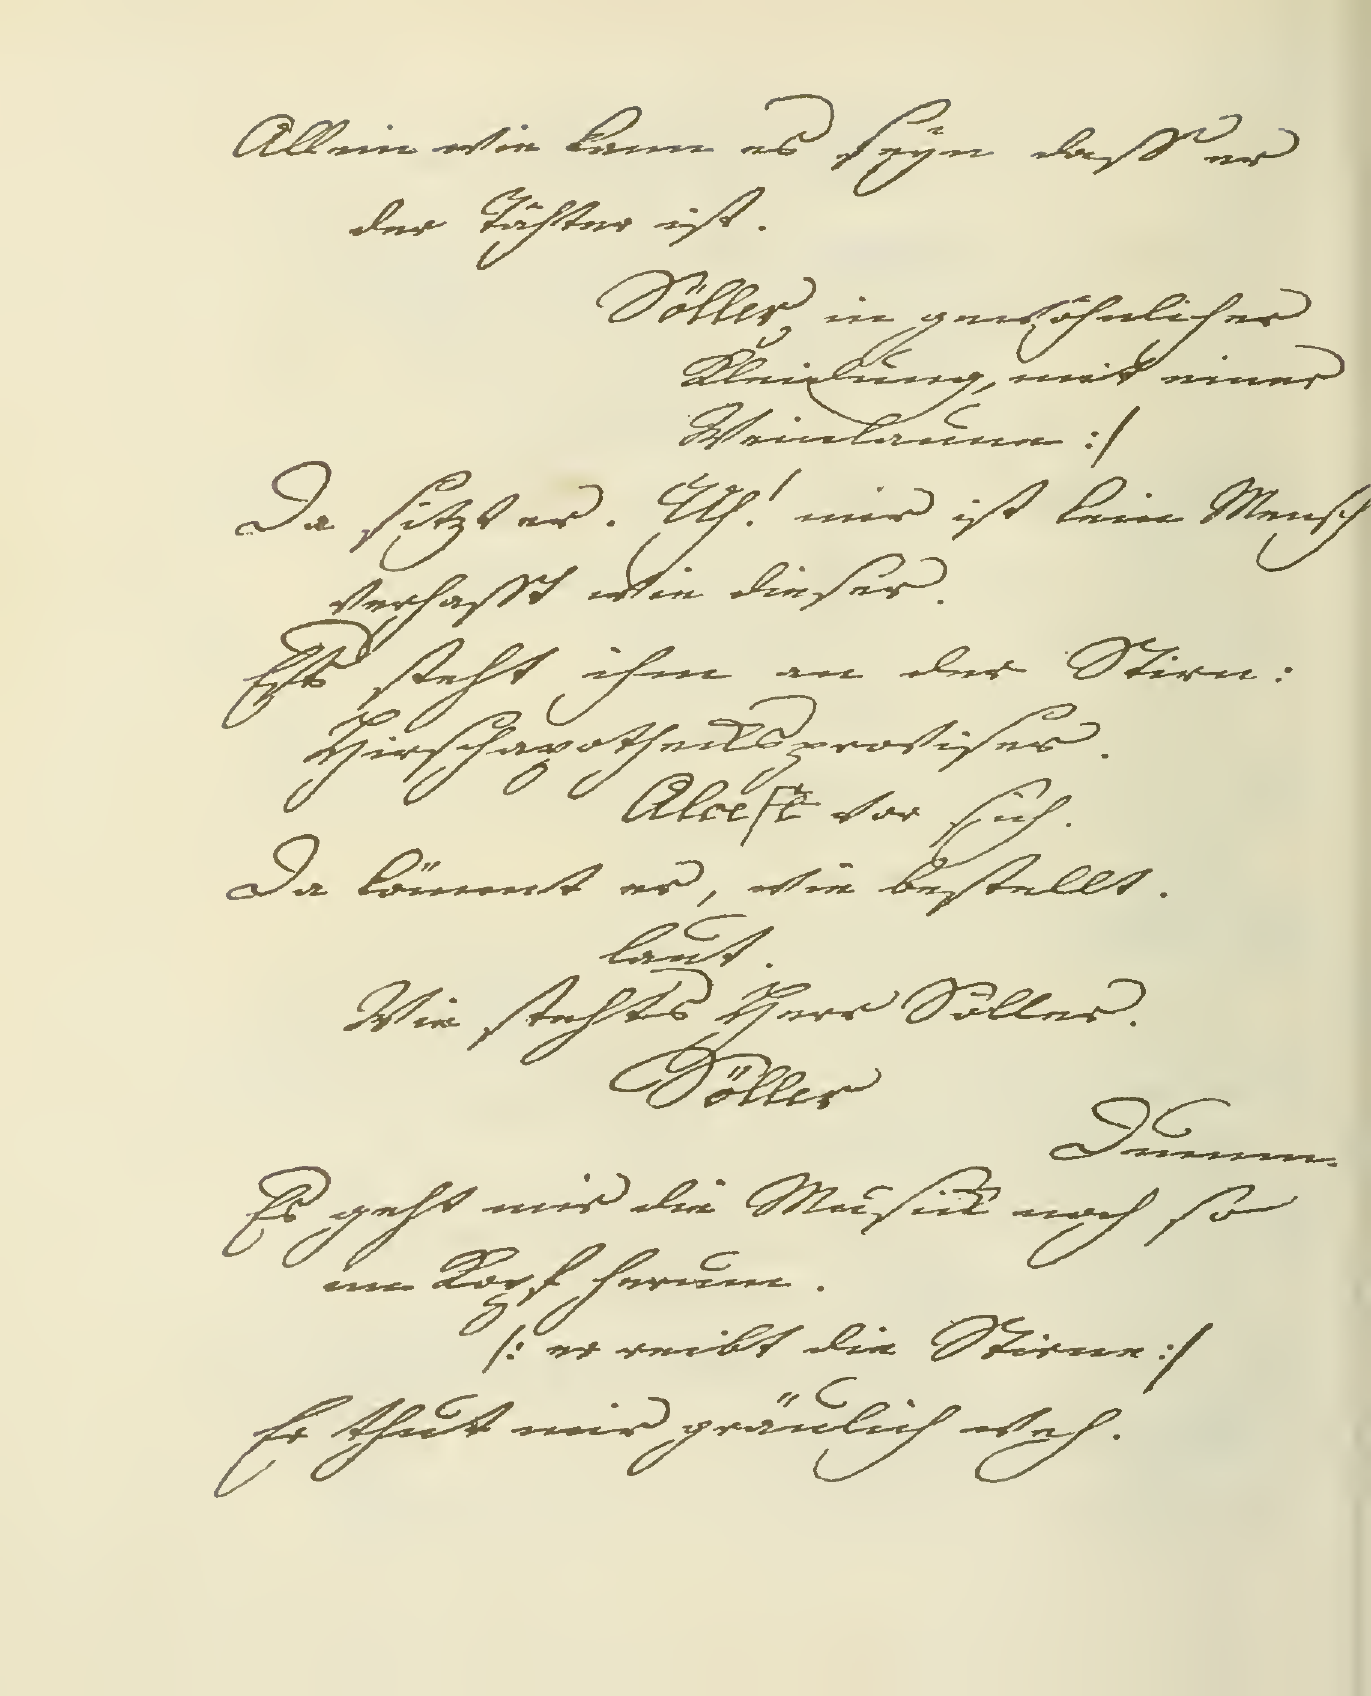 Allein wie kann es seyn dass er
der Tähter ist.
Söller, in gewöhnlicher
Kleidung, mit einer
Weinlaune :/
Da sitzt er. Uh! mir ist kein Mensch
verhasst wie dieser.
Es steht ihm an der Stirn:
Hirschapothecksproviser.
Alceste vor sich.
Da kömmt er, wie bestellt.
laut.
Wie stehts Herr Söller.
Söller
Dumm.
Es geht mir die Musick noch so
im Kopf herum.
/: er reibt die Stirne :/
Er thut mir gräulich weh.